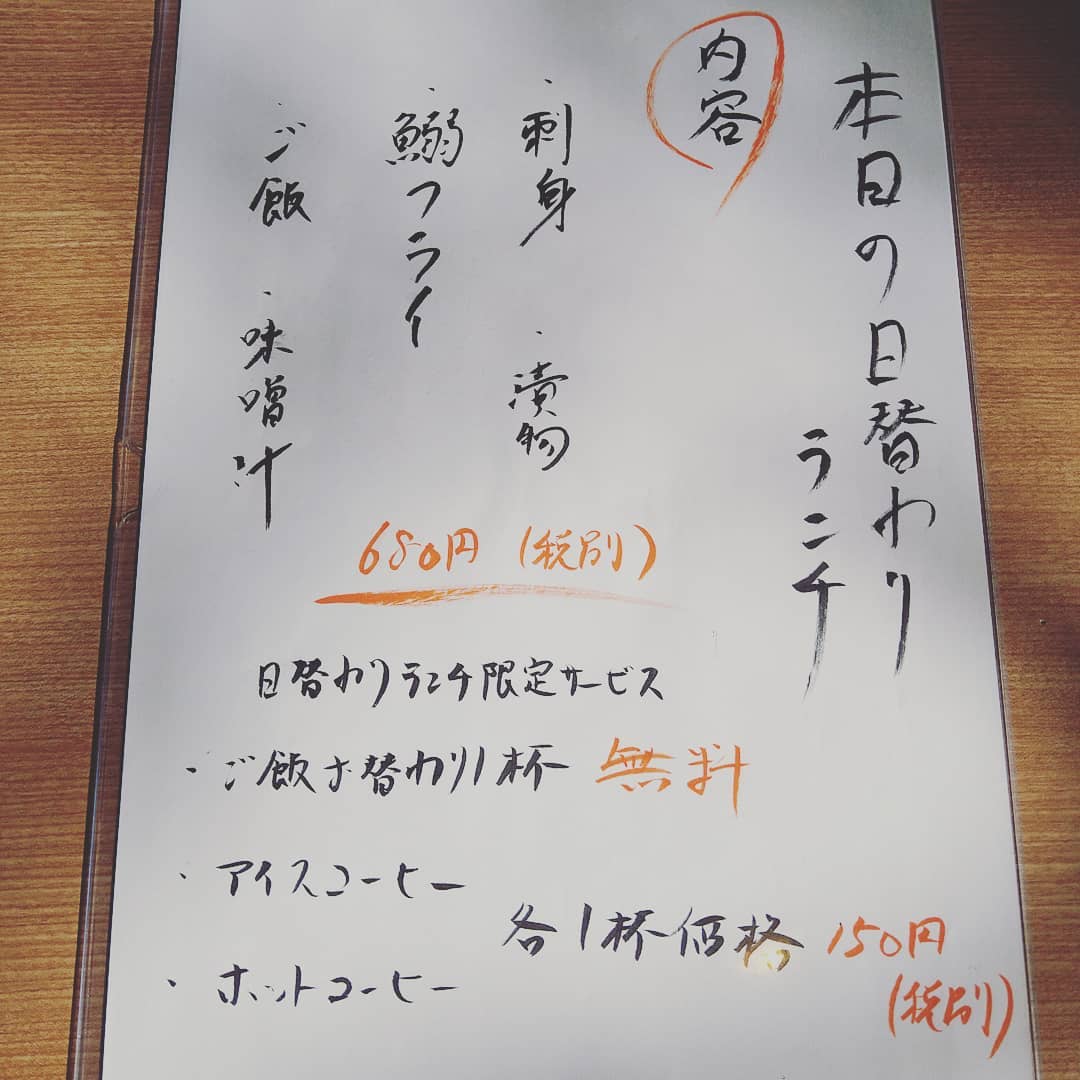 本日の日替わり
ランチ
内容
・刺身 ・漬物
・鰯フライ
・ご飯 ・味噌汁
680円(税別)
日替わりランチ限定サービス
・ご飯お替わり1杯 無料
・アイスコーヒー
・ホットコーヒー
各1杯価格 150円
(税別)